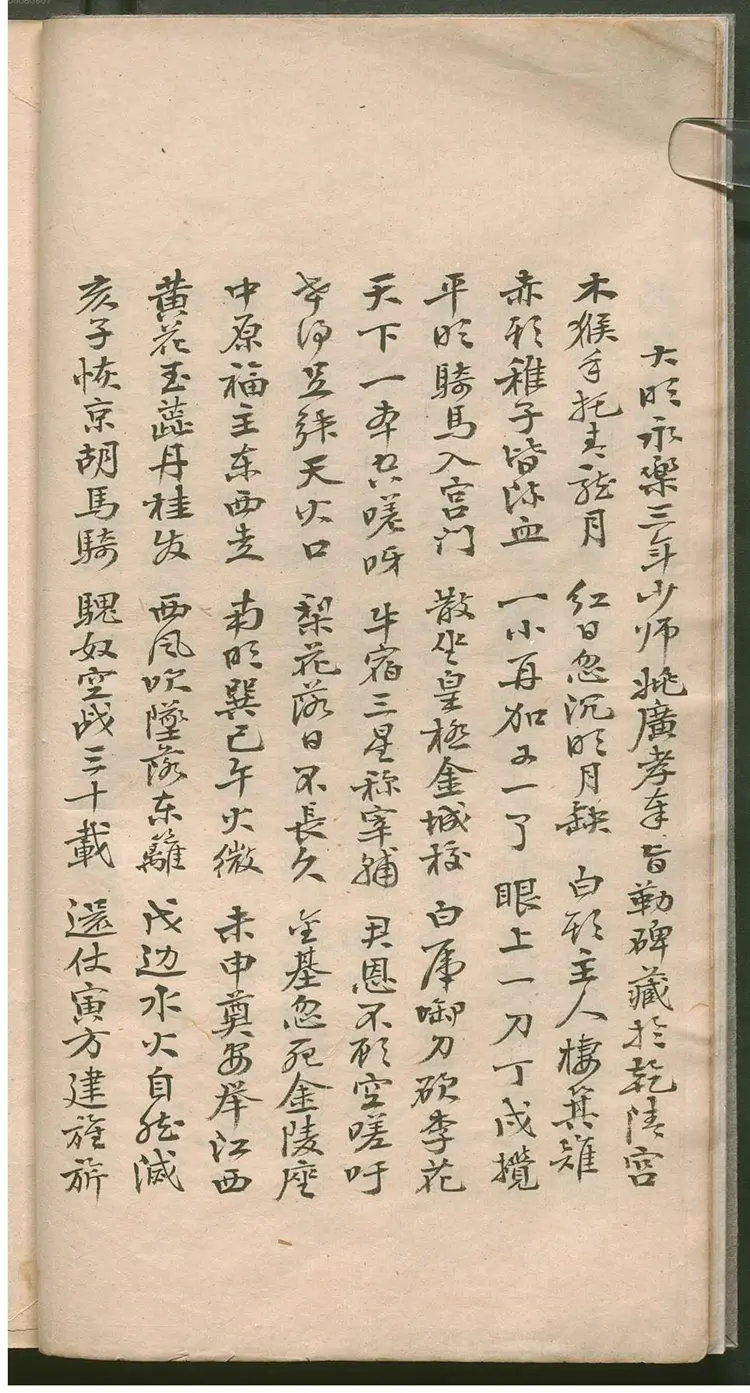 大明永樂三年少师姚廣孝奉旨勒碑藏於乾清宫
木猴手托青龍月 红日忽沉明月缺 白头主人棲箕雉
赤头稚子皆流血 一小再加又一了 眼上一刀丁戊攪
平明騎馬入宫门 散坐皇極金城校 白虎啣刀砍李花
天下一本只嗟呀 牛宿三星称宰辅 君恩不顾空嗟吁
天火口 梨花落日不長久 金基忽死金陵座
中原福主东西走 南明巽已午火微 未申奠安举江西
黄花玉蕋丹桂发 西风吹墜落东籬 戊边水火自然滅
亥子恢京胡馬騎 騩奴空战三十載 還仗寅方建旌旂